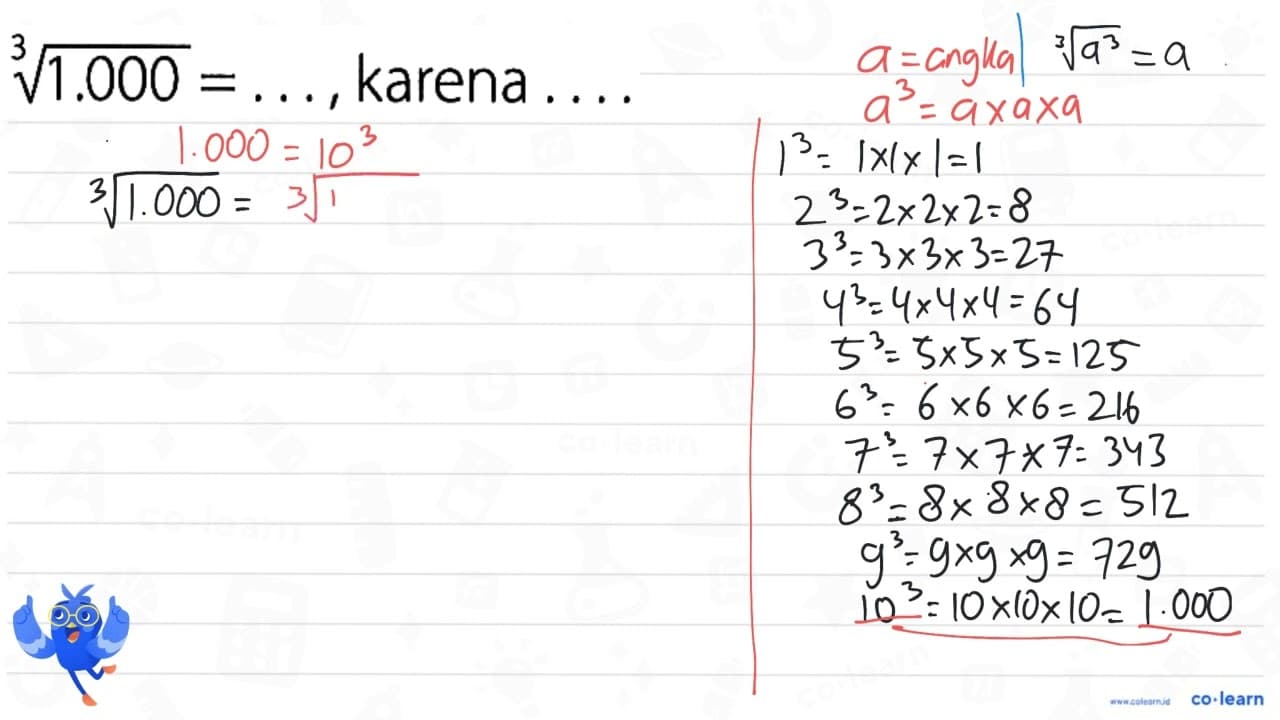 ∛1.000 = ..., karena ....
1.000 = 10³
∛1.000 = ∛1
a = angka | ∛a³ = a
a³ = a x a x a
1³ = 1x1x1 = 1
2³ = 2x2x2 = 8
3³ = 3x3x3 = 27
4³ = 4x4x4 = 64
5³ = 5x5x5 = 125
6³ = 6x6x6 = 216
7³ = 7x7x7 = 343
8³ = 8x8x8 = 512
9³ = 9x9x9 = 729
10³ = 10x10x10 = 1.000
www.colearn.id co·learn